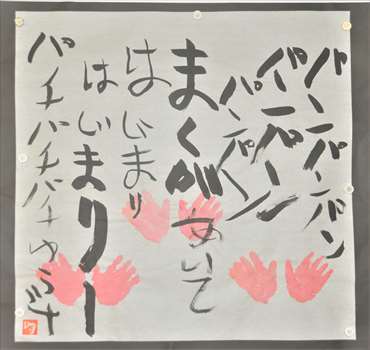 パンパンパン
パーンパーン
パーンパーン
まくがあいて
はじまり
はじまりー
パチパチパチ